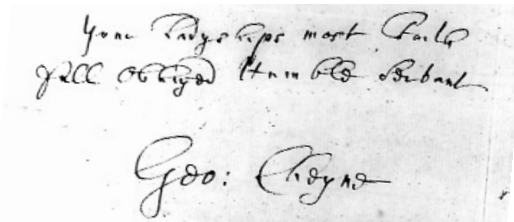 Your Ladyships most faith
full obliged Humble Servant
Geo: Cheyne